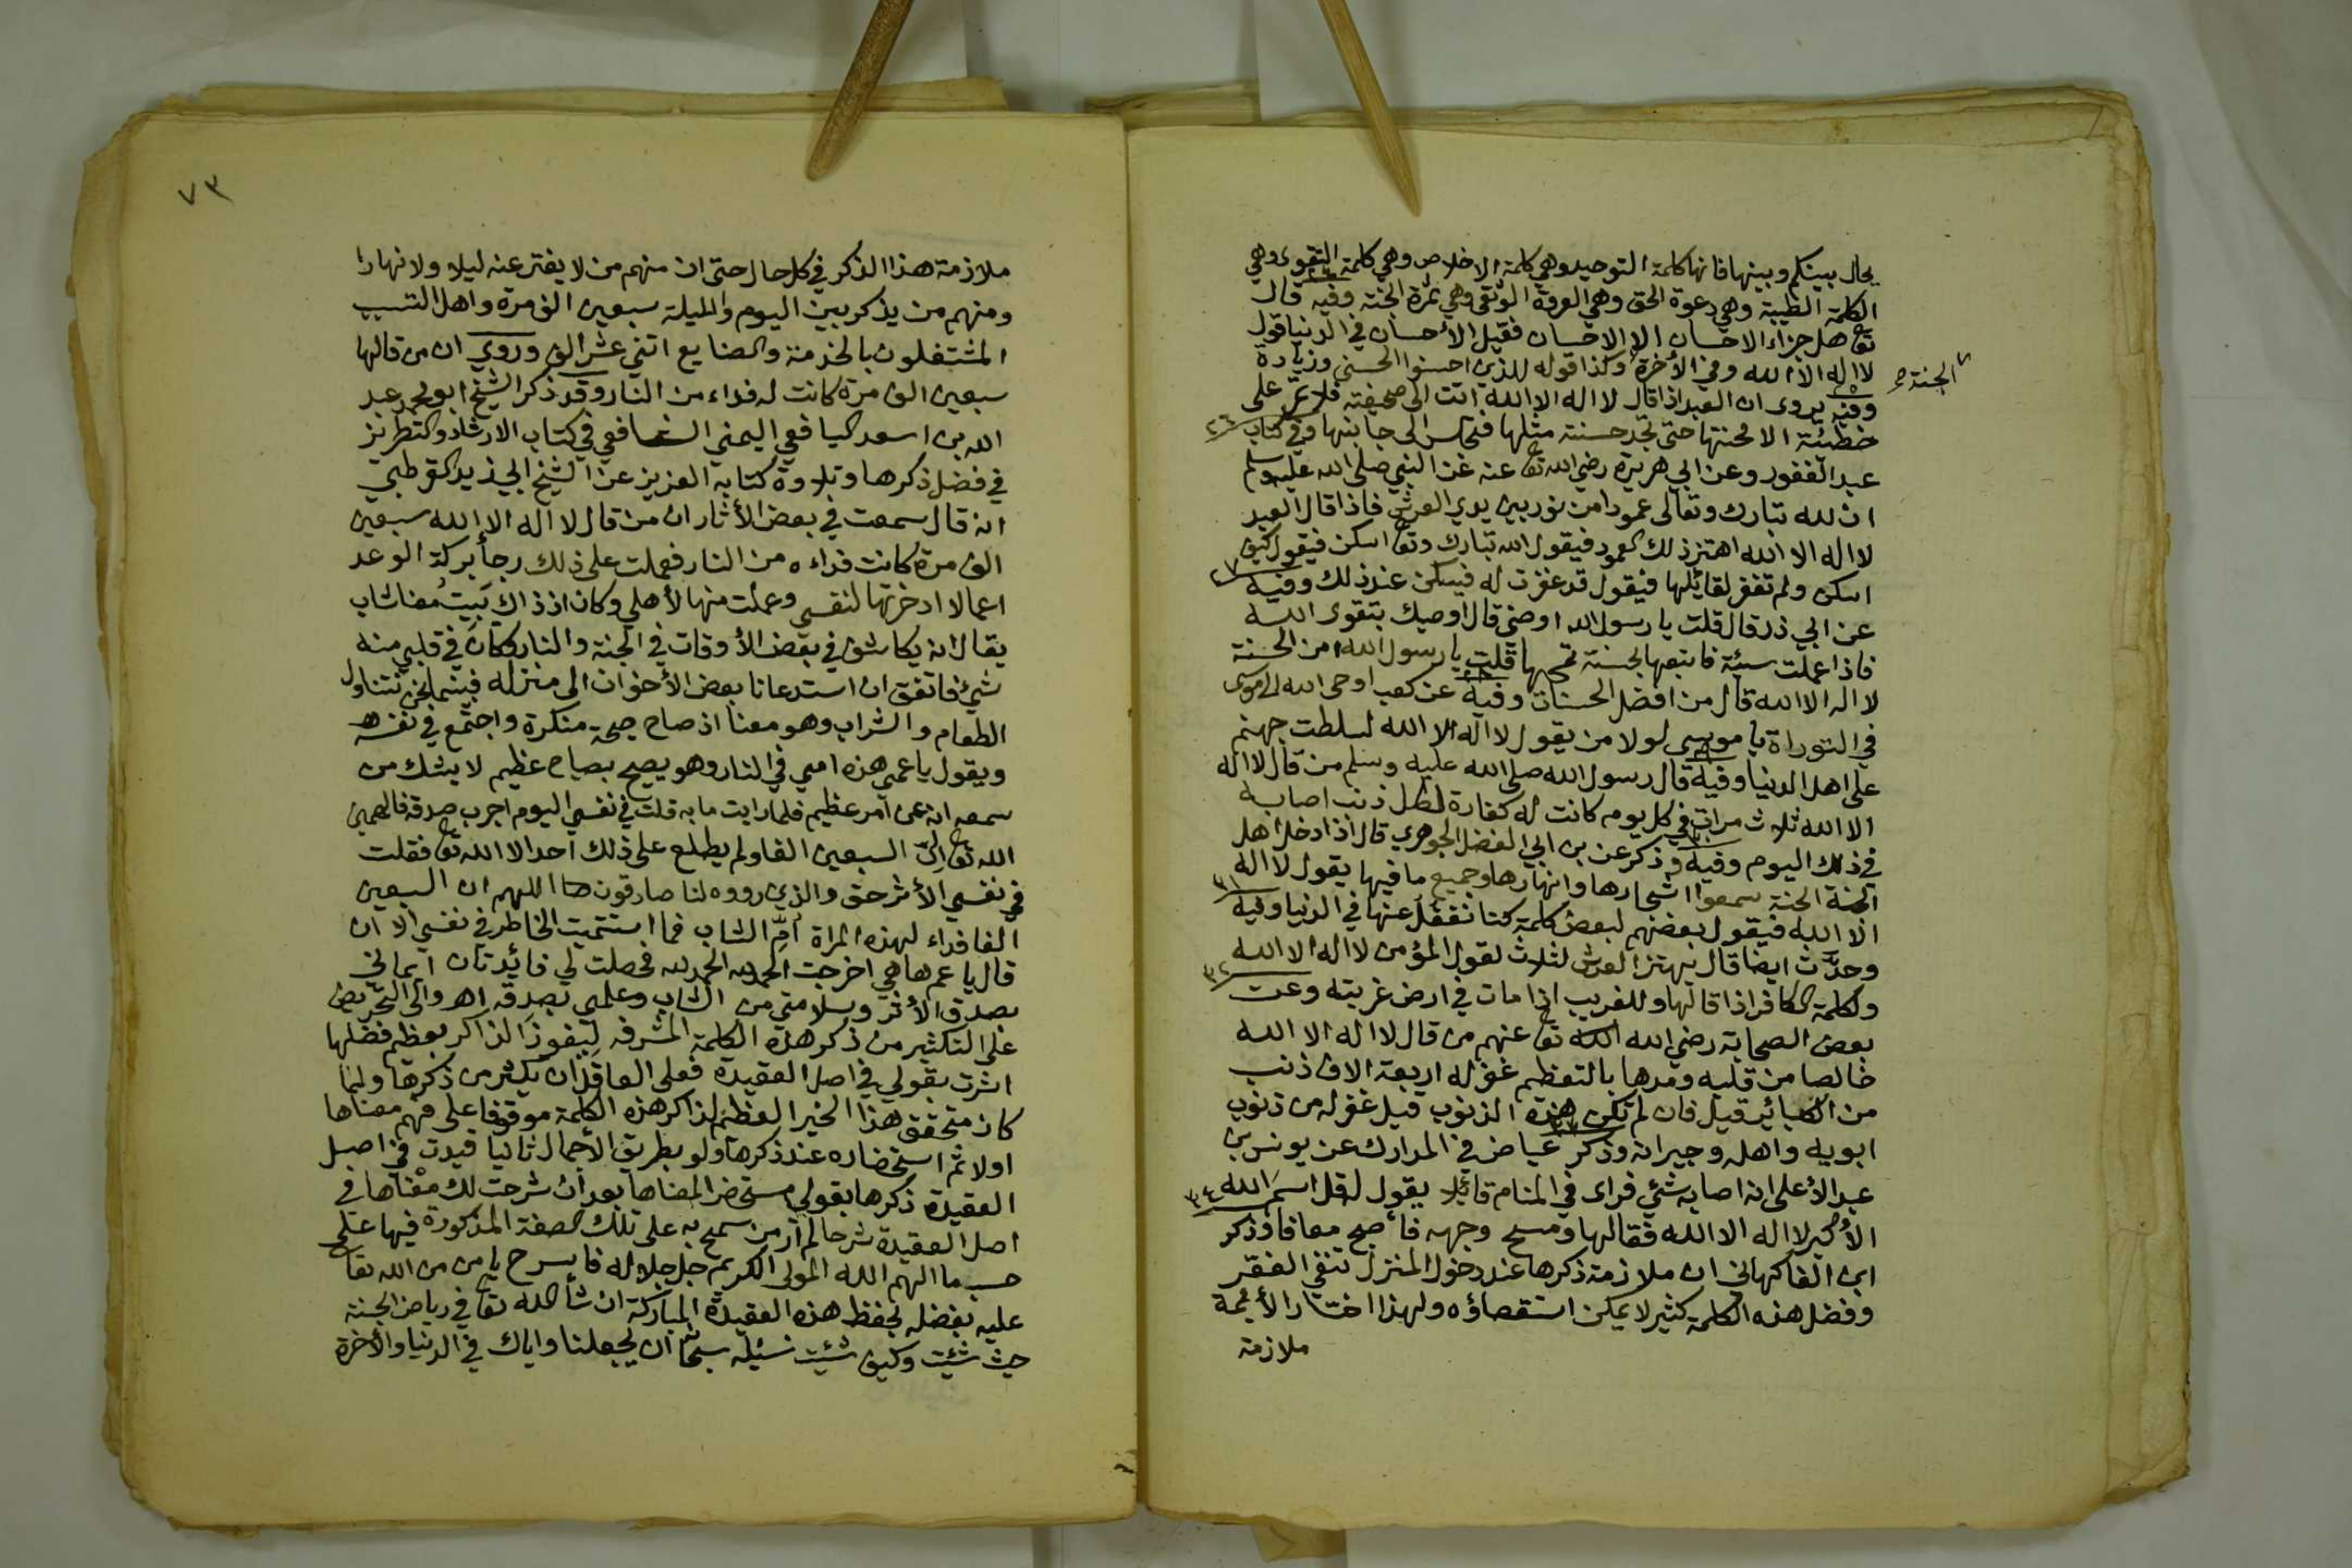 يحال بينكم وبينها فانها كلمة التوحيد وهي كلمة الاخلاص وهي كلمة التقوى وهي
الكلمة الطيبة وهي دعوة الحق وهي العروة الوثقى وهي ثمرة الجنة وفيه قال
تع هل جزاء الاحسان الا الاحسان فقيل الأحسان في الدنيا قول
لا اله الا الله وفي الأخرة وكذا قوله للذين احسنوا الحسنى وزيادة
الجنة صح
وفيه يروى ان العبد اذا قال لا اله الا الله اتت الى صحيفته فلا تمر على
خطيئة الا محتها حتى تجد حسنة مثلها فتجلس الى جانبها وفي كتاب
٢٦
عبد الغفور وعن ابي هريرة رضي الله تع عنه عن النبي صلى الله عليه وسلم
ان لله تبارك وتعالى عمودا من نور بين يدي العرش فاذا قال العبد
لا اله الا الله اهتز ذلك العمود فيقول الله تبارك وتع اسكن فيقول كيف
اسكن ولم تغفر لقائلها فيقول قد غفرت له فيسكن عند ذلك وفيه
٢٧
عن ابي ذر قال قلت يا رسول الله اوصني قال اوصيك بتقوى الله
فاذا عملت سيئة فاتبعها بحسنة تمحها قلت يا رسول الله امن الحسنة
لا اله الا الله قال من افضل الحسنات وفيه عن كعب اوحى الله الى موسى
في التوراة يا موسى لولا من يقول لا اله الا الله لسلطت جهنم
على اهل الدنيا وفيه قال رسول الله صلى الله عليه وسلم من قال لا اله
الا الله ثلاث مرات في كل يوم كانت له كفارة لكل ذنب اصابه
في ذلك اليوم وفيه وذكر عن بن ابي الفضل الجوهري قال اذا دخل اهل
الجنة الجنة سمعوا اشجارها وانهارها وجميع ما فيها يقول لا اله
الا الله فيقول بعضهم لبعض كلمة كنا نغفل عنها في الدنيا وفيه
٣١
وحدث ايضا قال يهتز العرش لثلاث لقول المؤمن لا اله الا الله
ولكلمة الكافر اذا قالها وللغريب اذا مات في ارض غربته وعن
٣٢
بعض الصحابة رضي الله الله تع عنهم من قال لا اله الا الله
خالصا من قلبه ومدها بالتعظيم غفر له اربعة الاف ذنب
من الكبائر قيل فان لم تكن هذه الذنوب قيل غفر له من ذنوب
ابويه واهله وجيرانه وذكر عياض في المدارك عن يونس بن
عبد الأعلى انه اصابه شيء فراى في المنام قائلا يقول له قل اسم الله
٣٤
الأكبر لا اله الا الله فقالها ومسح وجهه فأصبح معافا وذكر
ابن الفاكهاني ان ملازمة ذكرها عند دخول المنزل تنفي الفقر
وفضل هذه الكلمة كثير لا يمكن استقصاؤه ولهذا اختار الأئمة
ملازمة
٧٣
ملازمة هذا الذكر في كل حال حتى ان منهم من لا يفتر عنه ليلا ولا نهارا
ومنهم من يذكر بين اليوم والليلة سبعين الف مرة واهل التسبب
المشتغلون بالخدمة والصنايع اثني عشر الف وروي ان من قالها
سبعين الف مرة كانت له فداء من النار وقد ذكر الشيخ ابو محمد عبد
الله بن اسعد اليافعي اليمني الشافعي في كتاب الارشاد والتطريز
في فضل ذكرها وتلاوة كتابه العزيز عن الشيخ ابي زيد القرطبي
انه قال سمعت في بعض الأثار ان من قال لا اله الا الله سبعين
الف مرة كانت فداءه من النار فعملت على ذلك رجأ بركة الوعد
اعمالا ادخرتها لنفسي وعملت منها لأهلي وكان اذ ذاك يبيت معنا شاب
يقال انه يكاشف في بعض الأوقات في الجنة والنار وكان في قلبي منه
شيء فاتفق ان استدعانا بعض الأخوان الى منزله فبينما نحن نتناول
الطعام والشراب وهو معنا اذ صاح صيحة منكرة واجتمع في نفسه
ويقول يا عمي هذه امي في النار وهو يصيح بصياح عظيم لا يشك من
سمعه انه عن امر عظيم فلما رايت ما به قلت في نفسي اليوم اجرب صدقه فالهمني
الله تع الى السبعين الفا ولم يطلع على ذلك احد الا الله تع فقلت
في نفسي الأثر حق والذي رووه لنا صادقون اللهم ان السبعين
الفا فداء لهذه المراة ام الشاب فما استتميت الخاطر في نفسي الا ان
قال يا عم ها هي اخرجت الحمد لله الحمد لله فحصلت لي فائدتان ايماني
بصدق الأثر وسلامتي من الشاب وعلمي بصدقه اهـ والى التحريض
على التكثير من ذكر هذه الكلمة المشرفة ليفوز الذاكر بعظم فضلها
اشرت بقولي في اصل العقيدة فعلى العاقل ان يكثر من ذكرها ولما
كان متحقق هذا الخير العظيم لذاكر هذه الكلمة موقوفا على فهم معناها
اولا ثم استحضاره عند ذكرها ولو بطريق الأجمال ثانيا قيدت في اصل
العقيدة ذكرها بقولي مستحضر المعناها بعد أن شرحت لك معناها في
اصل العقيدة شرحا لم أر من سمح به على تلك الصفة المذكورة فيها على
حسب ما الهم الله المولى الكريم جل جلاله فاسرح يا من من الله تعا
عليه بفضله بحفظ هذه العقيدة المباركة ان شأ الله تع في رياض الجنة
حيث شئت وكيف شئت نسئله سبحانه ان يجعلنا واياك في الدنيا والأخرة